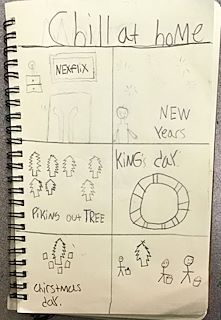 Chill at home
NEXFlix
NEW
Years
PiKiNg out TREE
KiNG's day.
Chirstmas
day.